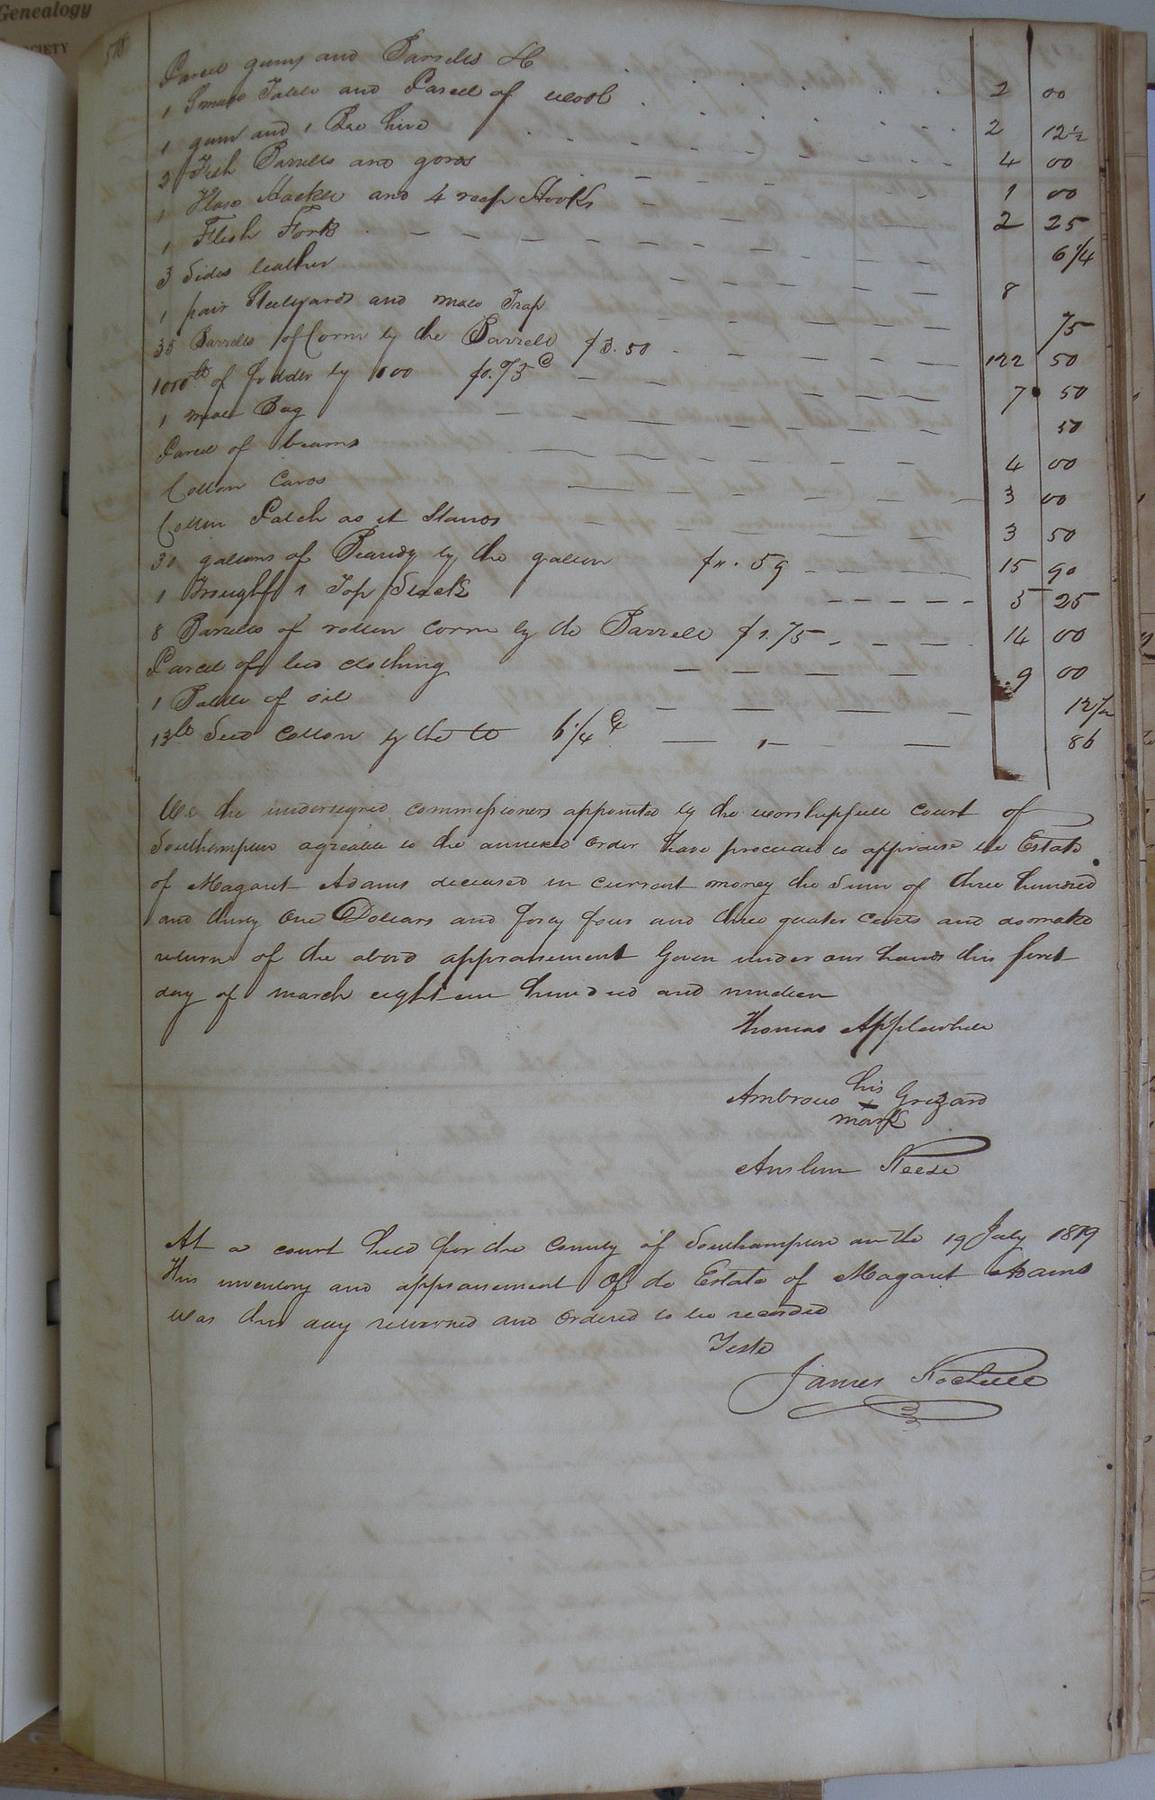 Genealogy
CIETY
Parcel gums and Barriels &c 2 00
1 Small Table and Parcel of wool 2 12½
1 gum and 1 Bee hive 4 00
2 Fish Barrells and gords 1 00
1 Flax Hackle and 4 reap Hooks 2 25
1 Flesh Fork 6¼
3 Sides leather 8
1 pair Steelyards and Trap 75
35 Barrells of Corn by the Barrell $3.50 122 50
of fodder by 100 $0.75 c 7 50
1 Bag 50
Parcel of beams 4 00
Cotton Cards 3 00
Cotton Patch as it Stands 3 50
30 gallons of Brandy by the gallon 15 90
1 1 Top Stack 5 25
8 Barrells of rotten corn by the Barrell $1.75 14 00
Parcel of bed clothing 9 00
1 Bottle of oil 12½
13 lb Seed Cotton by the lb 6¼ 86
We the undersigned commissioners appointed by the worshipfull court of
Southampton agreable to the annexed order have proceeded to appraise the Estate
of Magaret Adams deceased in currant money the Sum of three hundred
and thirty One Dollars and forty four and three quater Cents and do make
return of the above appraisement Given under our hands this first
day of march eighteen hundred and nineteen
Thomas Applewhite
his
Ambrous + Grizard
mark
Anslem Reese
At a court held for the County of Southampton on the 19 July 1819
This inventory and appraisement Of the Estate of Magaret Adams
was this day returned and ordered to be recorded
Teste
James Rochelle